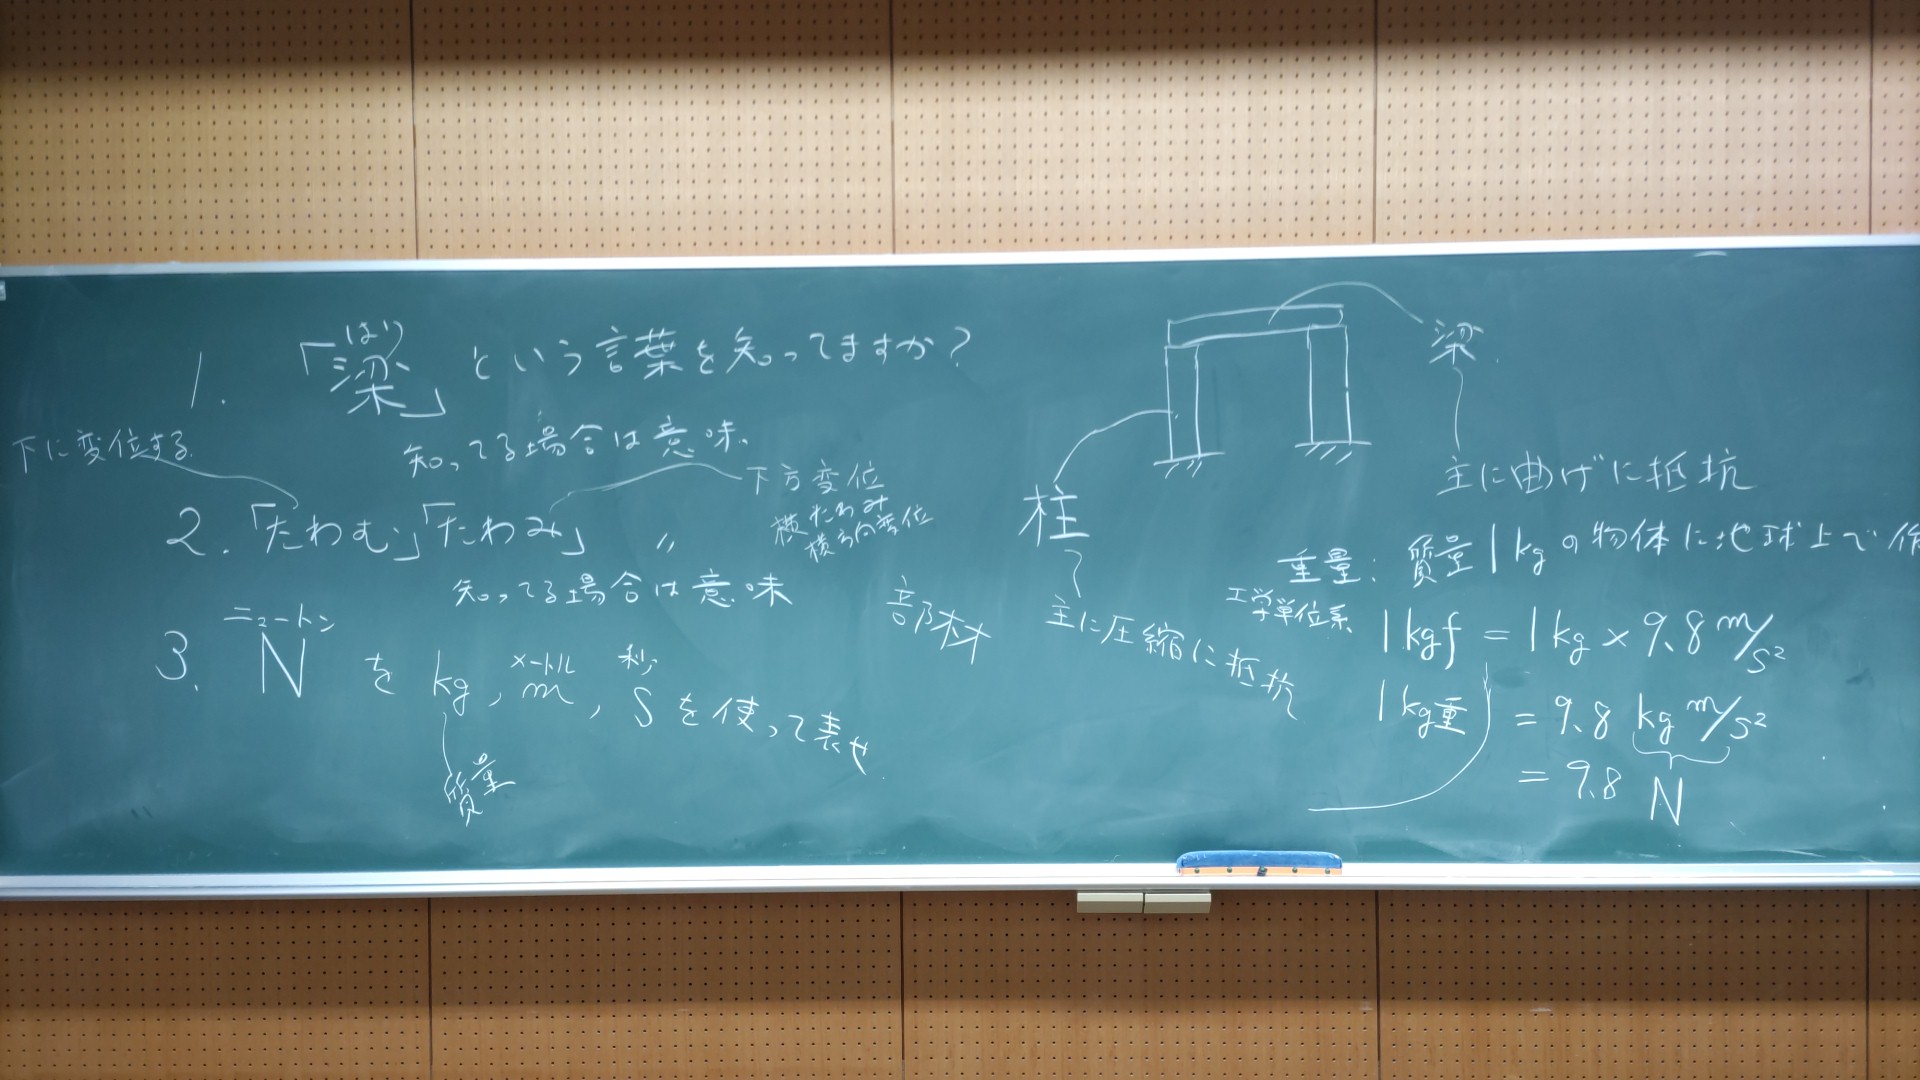 1. 「梁」という言葉を知ってますか?
はり
知ってる場合は意味
下に変位する
2. 「たわむ」「たわみ」 〃
下方変位
横たわみ
横方向変位
知ってる場合は意味
3. N を kg, m, s を使って表せ
ニュートン
メートル
秒
質量
部材
梁
主に曲げに抵抗
柱
主に圧縮に抵抗
重量: 質量1kgの物体に地球上で作
工学単位系
1kgf = 1kg × 9.8 m/s²
1kg重 = 9.8 kg m/s²
= 9.8 N